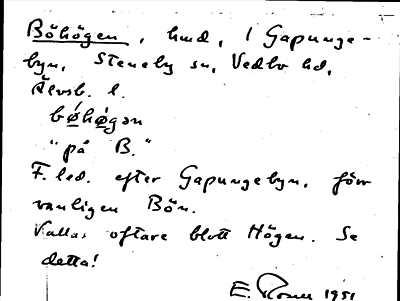 Böhögen, hmd, i Gapunge-
byn, Steneby sn, Vedbo hd,
Älvsb. l.
bøhøgən
"på B."
F. led. efter Gapungebyn, förr
vanligen Bön.
Kallas oftare blott Högen. Se
detta!
E. 1951